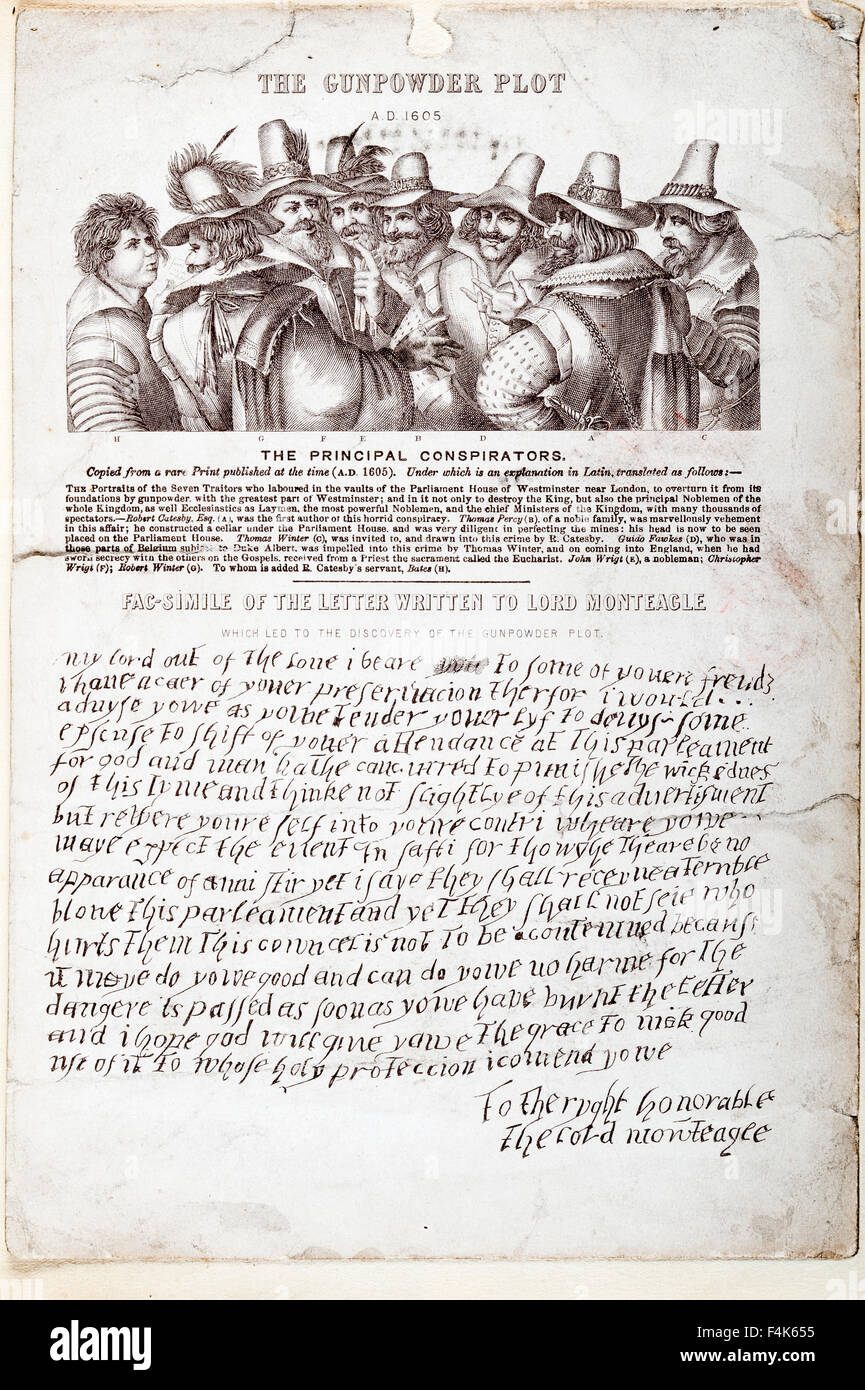 THE GUNPOWDER PLOT
A.D. 1605
H G F E B D A C
THE PRINCIPAL CONSPIRATORS.
Copied from a rare Print published at the time (A.D. 1605). Under which is an explanation in Latin, translated as follows:—
THE Portraits of the Seven Traitors who laboured in the vaults of the Parliament House of Westminster near London, to overturn it from its
foundations by gunpowder, with the greatest part of Westminster; and in it not only to destroy the King, but also the principal Noblemen of the
whole Kingdom, as well Ecclesiastics as Laymen, the most powerful Noblemen, and the chief Ministers of the Kingdom, with many thousands of
spectators.—Robert Catesby, Esq. (A), was the first author of this horrid conspiracy. Thomas Percy (B), of a noble family, was marvellously vehement
in this affair; he constructed a cellar under the Parliament House, and was very diligent in perfecting the mines: his head is now to be seen
placed on the Parliament House. Thomas Winter (C), was invited to, and drawn into this crime by R. Catesby. Guido Fawkes (D), who was in
those parts of Belgium subject to Duke Albert, was impelled into this crime by Thomas Winter, and on coming into England, when he had
sworn secrecy with the others on the Gospels, received from a Priest the sacrament called the Eucharist. John Wrigt (E), a nobleman; Christopher
Wrigt (F); Robert Winter (G). To whom is added R. Catesby's servant, Bates (H).
FAC-SIMILE OF THE LETTER WRITTEN TO LORD MONTEAGLE
WHICH LED TO THE DISCOVERY OF THE GUNPOWDER PLOT.
my lord out of the loue i beare to some of youere frends
i haue a caer of youer preseruacion therfor i would
aduyse yowe as yowe tender youer lyf to deuys some
epscuse to shift of youer attendance at this parleament
for god and man hathe concurred to punishe the wickednes
of this tyme and thinke not slightlye of this advertisment
but retyere youre self into youre contri wheare yowe
maye expect the event in safti for thowghe theare be no
apparance of anni stir yet i saye they shall receyve a terrible
blowe this parleament and yet they shall not seie who
hurts them this cowncel is not to be contemned because
it maye do yowe good and can do yowe no harme for the
dangere is passed as soon as yowe have burnt the letter
and i hope god will give yowe the grace to mak good
use of it to whose holy proteccion i comend yowe
To the ryght honorable
the lord mowteagle
alamy
alamy
Image ID: F4K655
www.alamy.com